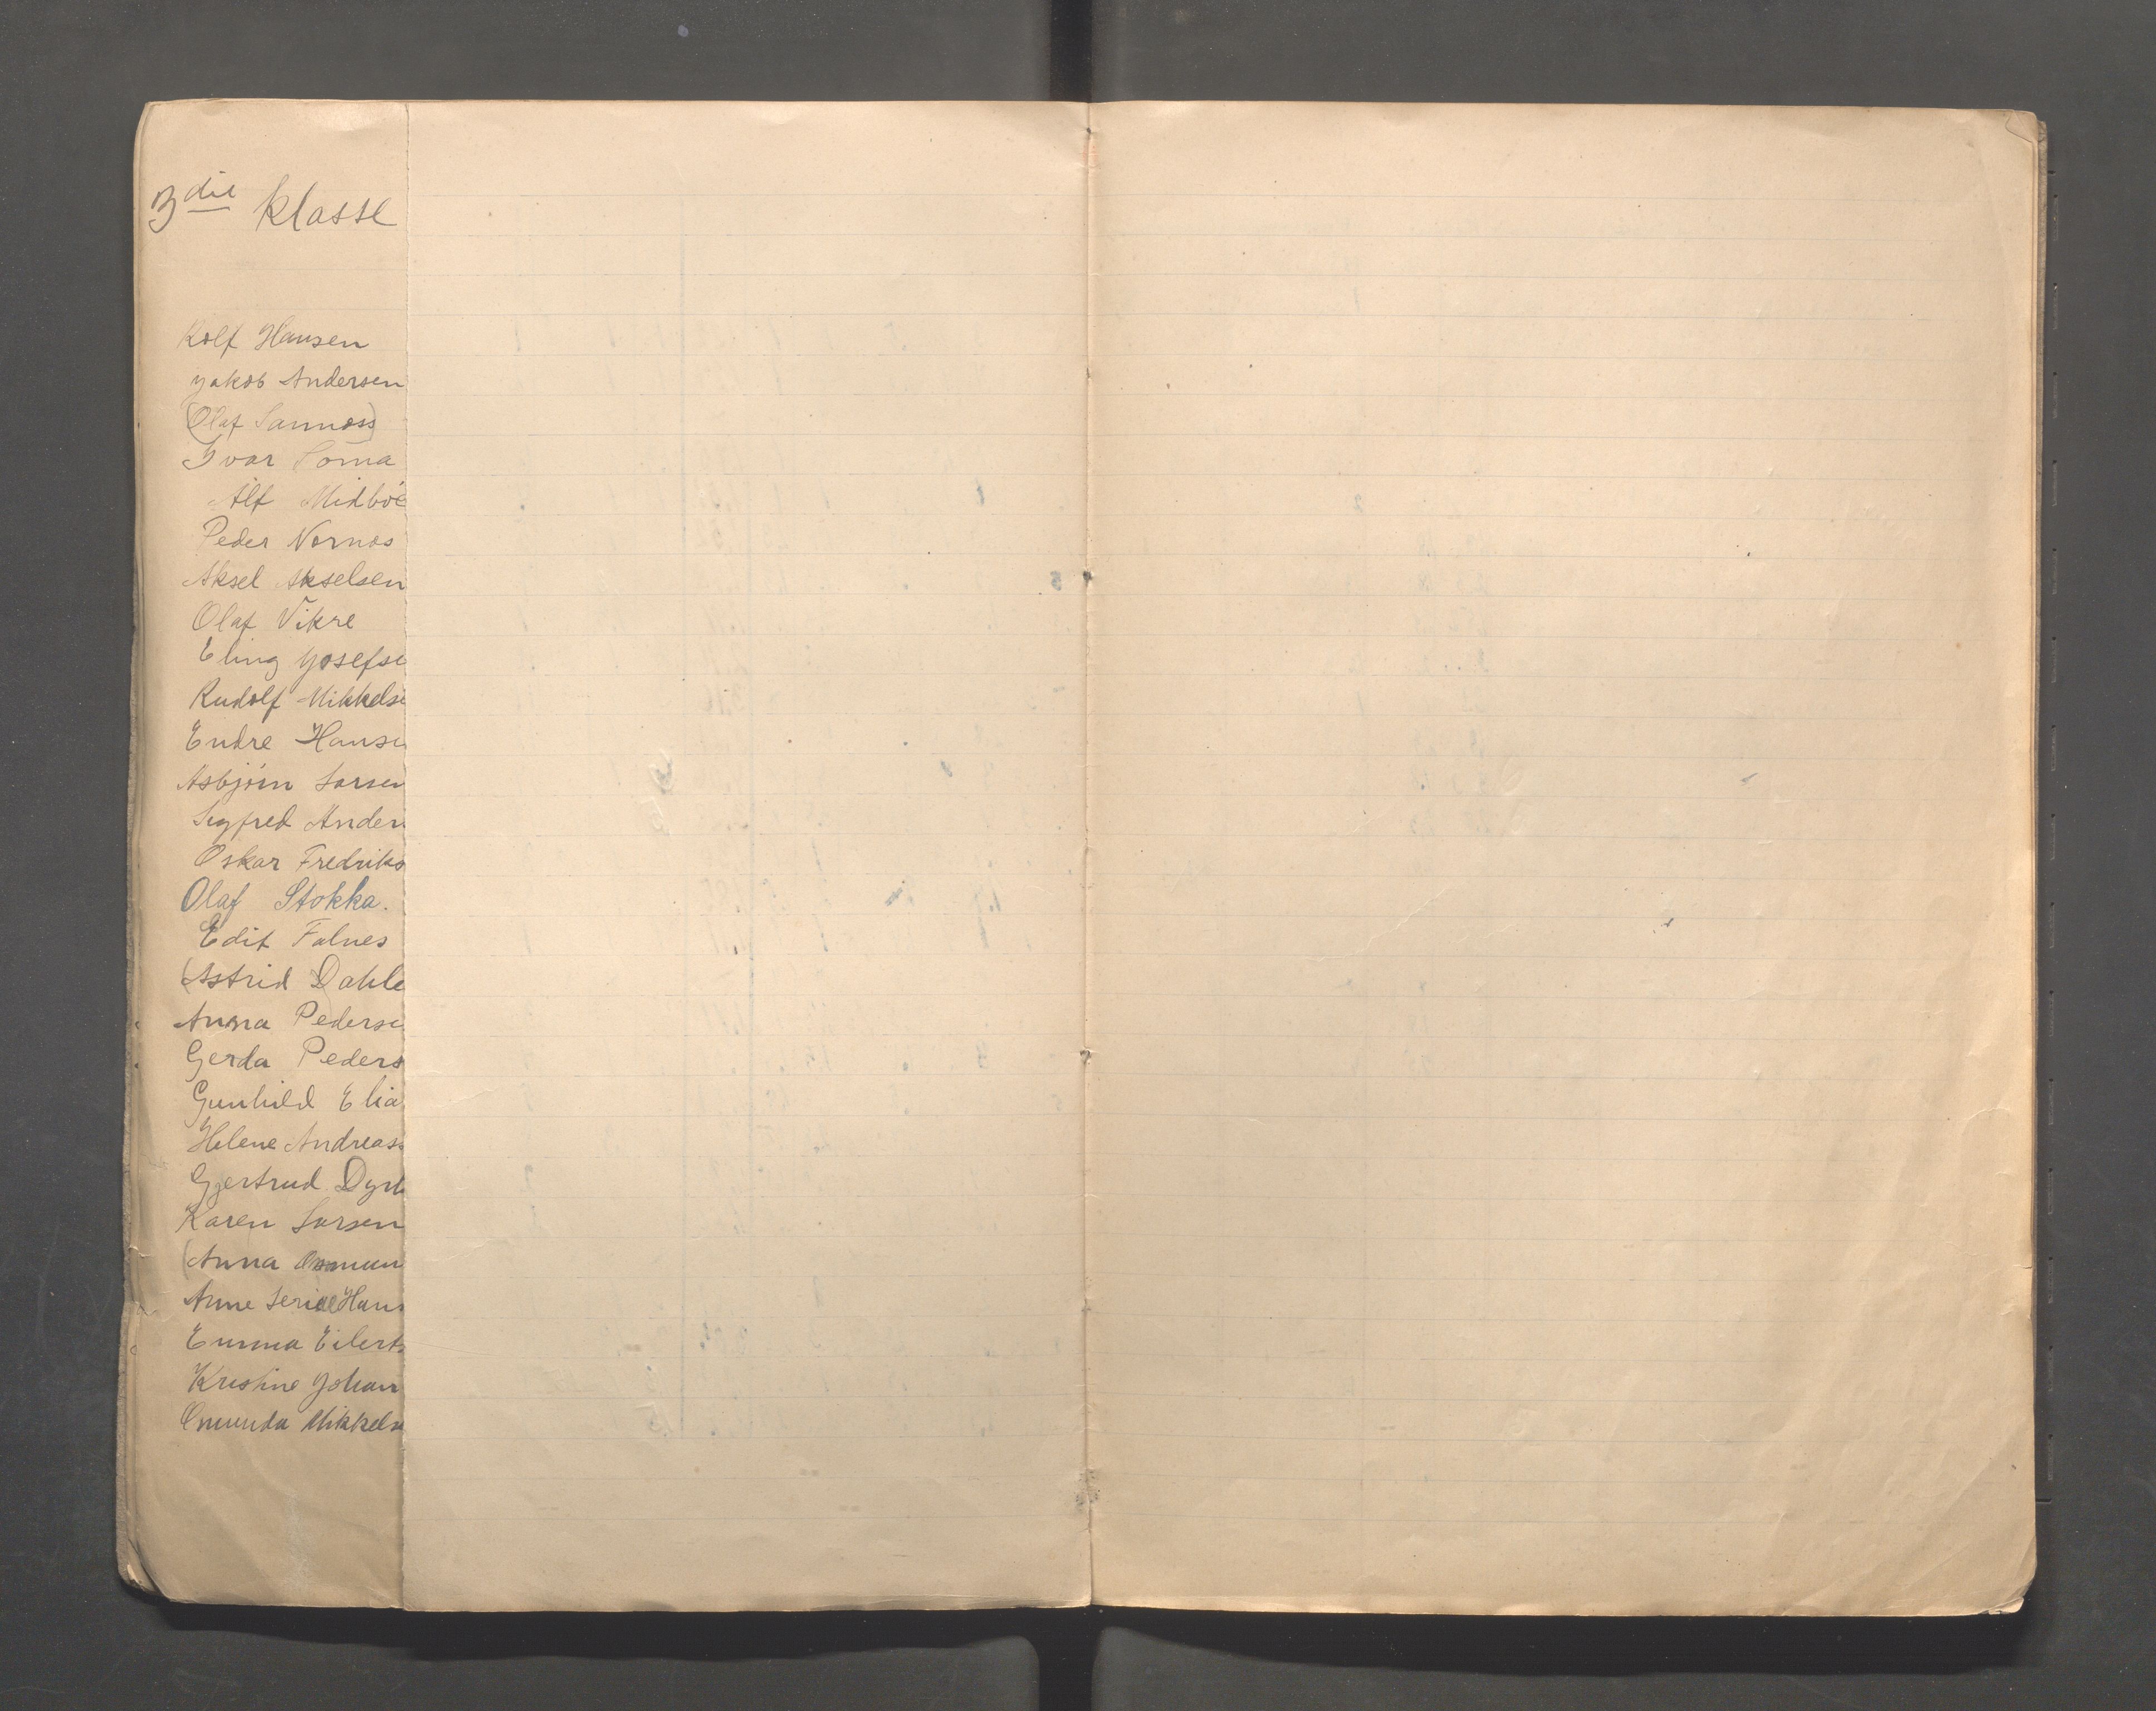 3die klasse
Rolf Hansen
Jakob Andersen
(Olaf Sannæss)
Ivar Soma
Alf Midböe
Peder Nornes
Aksel Akselsen
Olaf Vikre
Eling Josefse
Rudolf Mikkelse
Endre Hanse
Asbjörn Larsen
Sigfred Ander
Oskar Fredriks
Olaf Stokka.
Edit Falnes
(Astrid Dahle
Anna Pederse
Gerda Peders
Gunhild Elia
Helene Andreass
Gjertrud
Karen Larsen
(Anna Osmun
Anne Serine Hans
Emma Eilerts
Kristine Johan
Omunda Mikkels